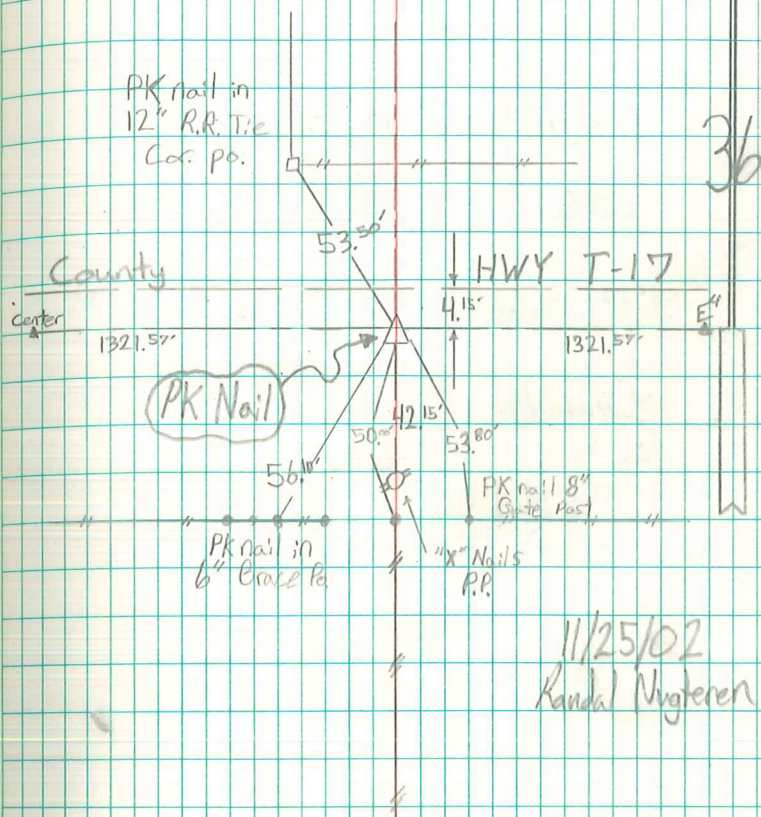 PK nail in
12" R.R. Tie
Cor. po.
36
53.50'
County HWY T-17
4.15'
Center
E
1321.57'
1321.57'
PK Nail
42.15'
50.00'
53.80'
56.10'
PK nail 8"
Gate Post
PK nail in
6" Brace Po.
"X" Nails
P.P.
11/25/02
Randal Nugteren